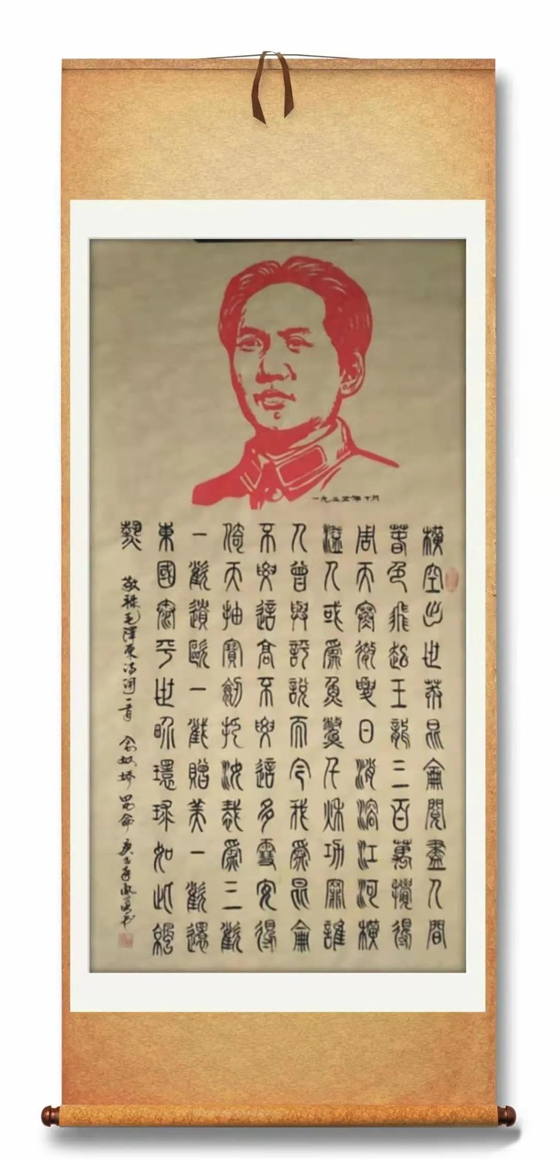 一九三五年十月
橫空出世莽昆侖閱盡人間
春色飛起玉龍三百萬攪得
周天寒徹夏日消溶江河橫
溢人或爲魚鱉千秋功罪誰
人曾與評說而今我爲昆侖
不要這高不要這多雪安得
倚天抽寶劍把汝裁爲三截
一截遺歐一截贈美一截還
東國太平世界環球如此涼
熱
敬錄毛澤東詩詞一首 念奴嬌 昆侖 庚子年書